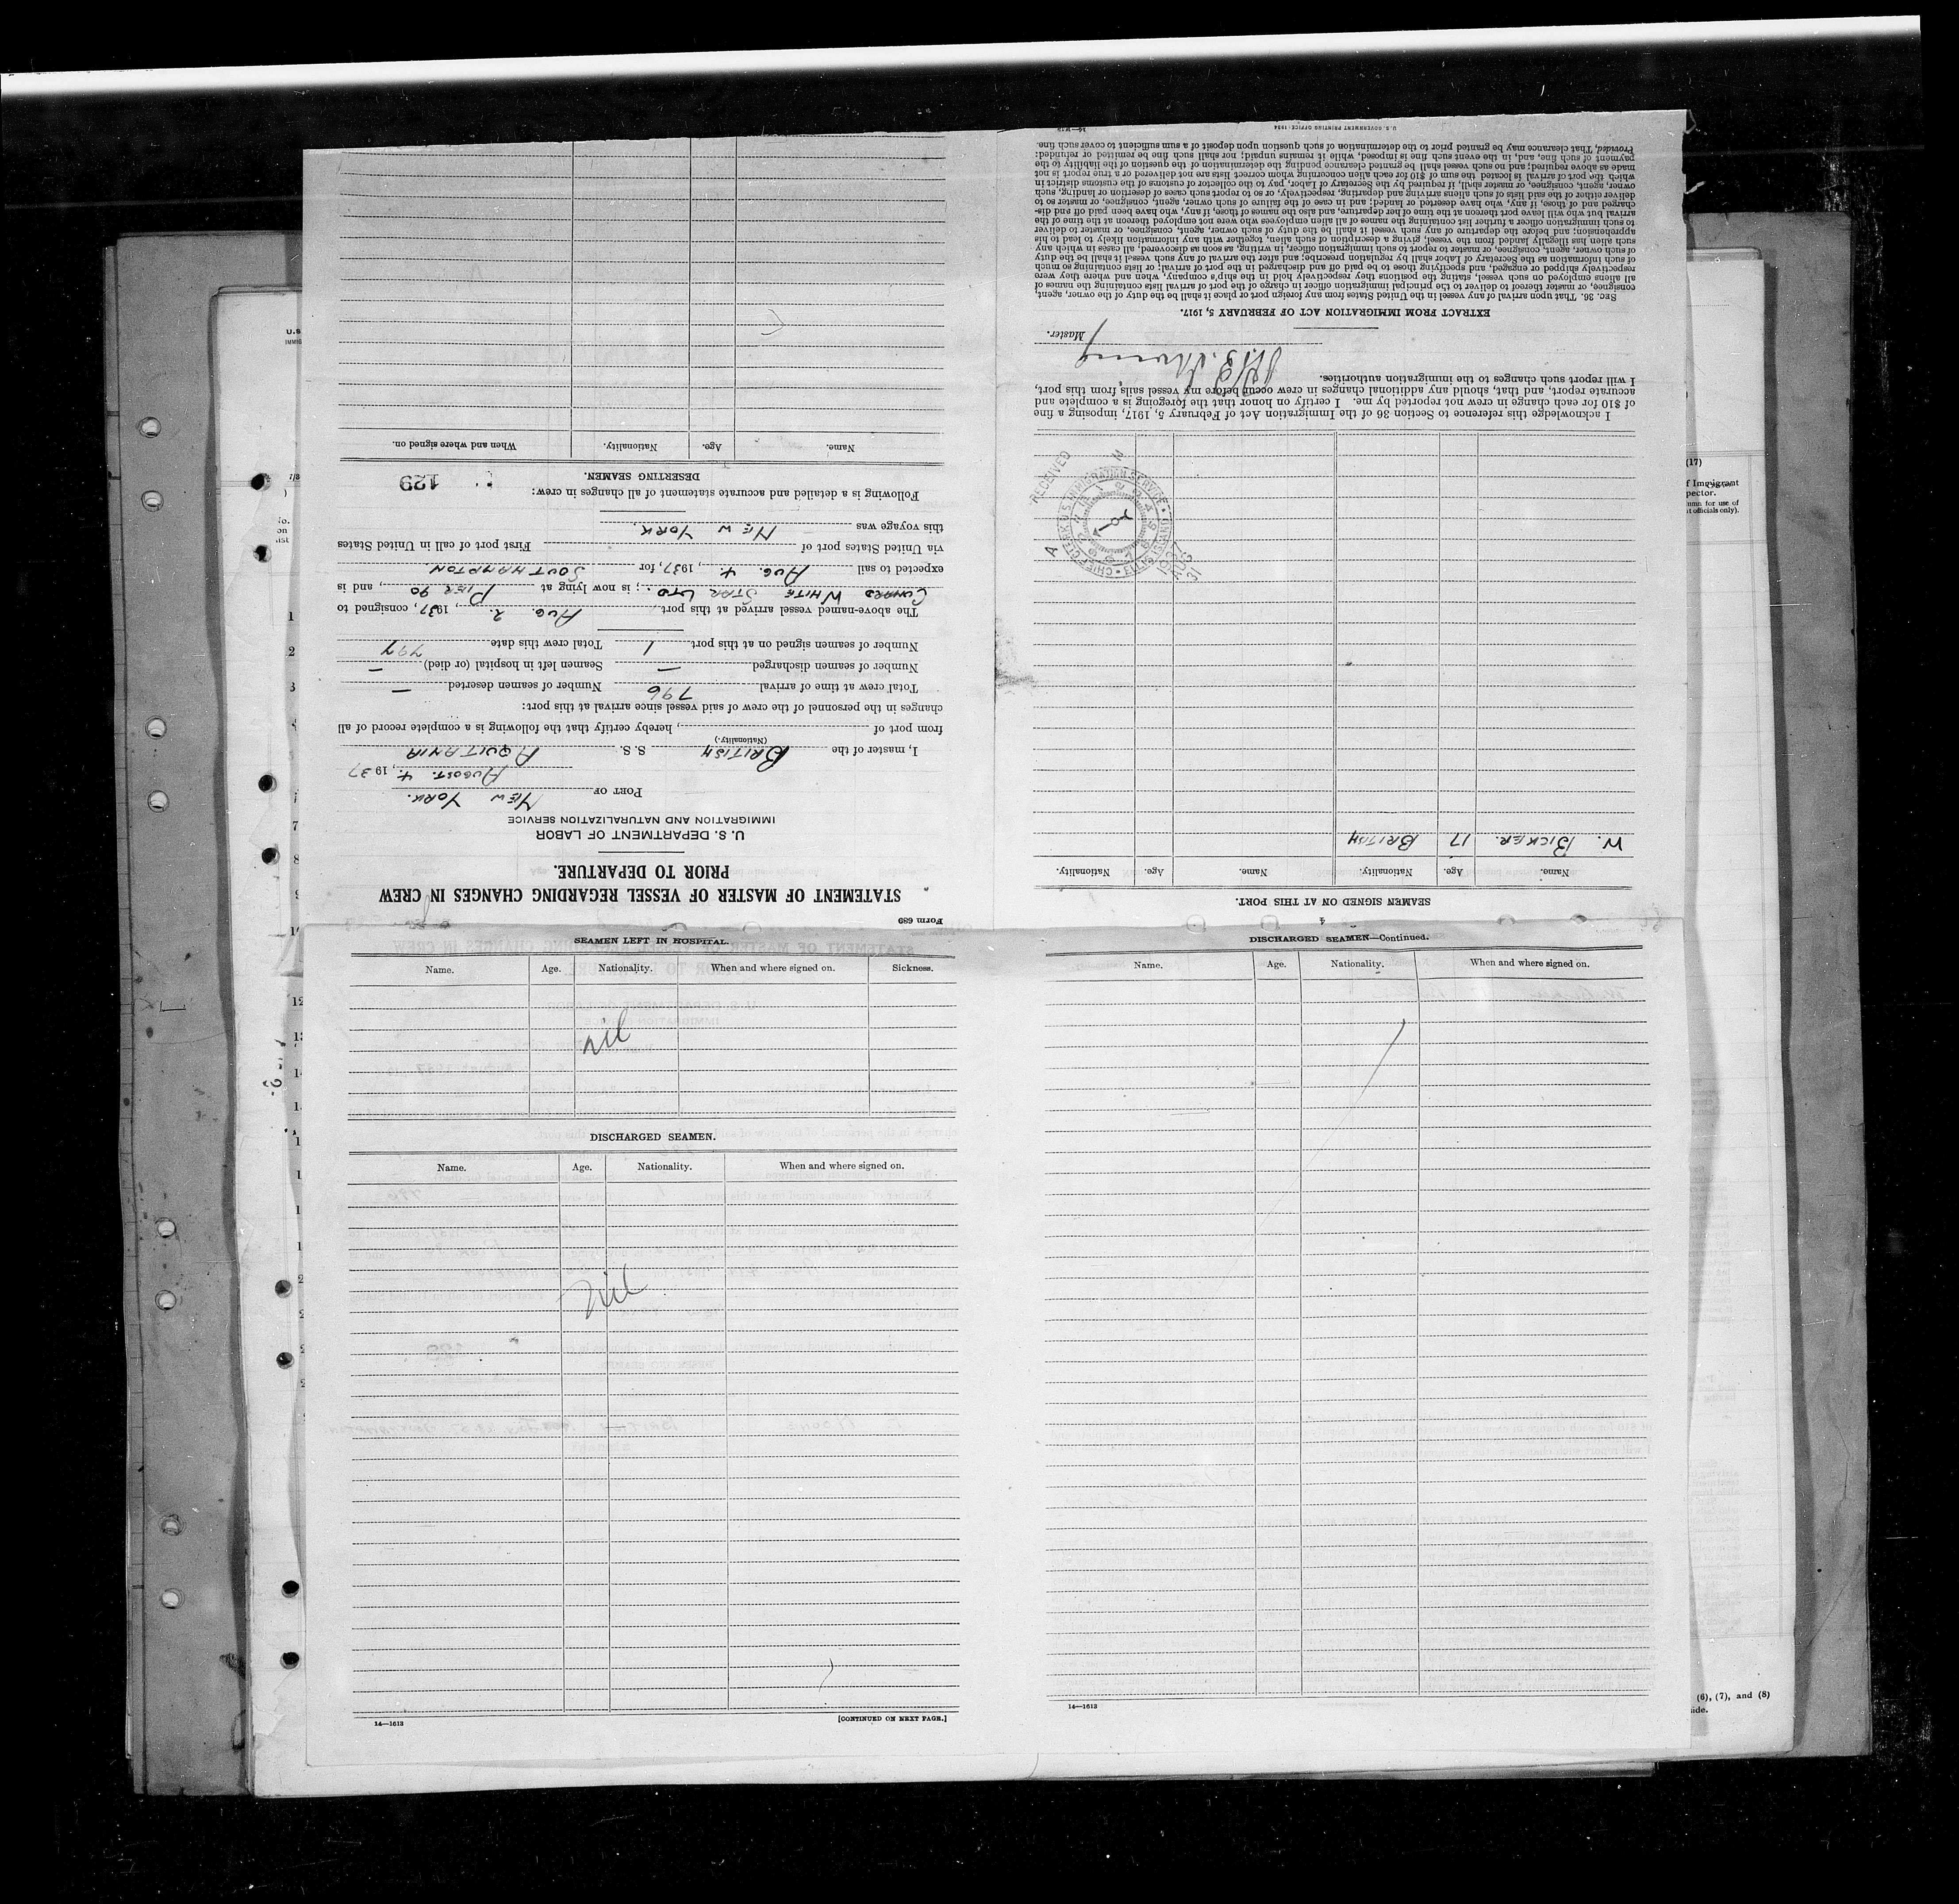 Form 689
STATEMENT OF MASTER OF VESSEL REGARDING CHANGES IN CREW
PRIOR TO DEPARTURE.
U. S. DEPARTMENT OF LABOR
IMMIGRATION AND NATURALIZATION SERVICE
PORT OF NEW YORK.
AUGUST. 4, 1937
I, master of the BRITISH S. S. AQUITANIA
(Nationality.)
from port of , hereby certify that the following is a complete record of all
changes in the personnel of the crew of said vessel since arrival at this port:
Total crew at time of arrival 796 Number of seamen deserted —
Number of seamen discharged — Seamen left in hospital (or died) —
Number of seamen signed on at this port 1 Total crew this date 797
The above-named vessel arrived at this port AUG. 2., 1937, consigned to
CUNARD WHITE STAR LTD.; is now lying at PIER 90, and is
expected to sail AUG. 4., 1937, for SOUTHAMPTON
via United States port of First port of call in United States
this voyage was NEW YORK.
Following is a detailed and accurate statement of all changes in crew:
129
DESERTING SEAMEN.
Name. Age. Nationality. When and where signed on.
4
SEAMEN SIGNED ON AT THIS PORT.
Name. Age. Nationality. Name. Age. Nationality.
W. BICKER. 17 BRITISH
RECEIVED
CHIEF CLERK U.S. IMMIGRATION SERVICE • ELLIS ISLAND •
A M
1937
AUG
31
I acknowledge this reference to Section 36 of the Immigration Act of February 5, 1917, imposing a fine
of $10 for each change in crew not reported by me. I certify on honor that the foregoing is a complete and
accurate report, and that, should any additional changes in crew occur before my vessel sails from this port,
I will report such changes to the immigration authorities.
Master.
EXTRACT FROM IMMIGRATION ACT OF FEBRUARY 5, 1917.
SEC. 36. That upon arrival of any vessel in the United States from any foreign port or place it shall be the duty of the owner, agent,
consignee, or master thereof to deliver to the principal immigration officer in charge of the port of arrival lists containing the names of
all aliens employed on such vessel, stating the positions they respectively hold in the ship's company, when and where they were
respectively shipped or engaged, and specifying those to be paid off and discharged in the port of arrival; or lists containing so much
of such information as the Secretary of Labor shall by regulation prescribe; and after the arrival of any such vessel it shall be the duty
of such owner, agent, consignee, or master to report to such immigration officer, in writing, as soon as discovered, all cases in which any
such alien has illegally landed from the vessel, giving a description of such alien, together with any information likely to lead to his
apprehension; and before the departure of any such vessel it shall be the duty of such owner, agent, consignee, or master to deliver
to such immigration officer a further list containing the names of all alien employees who were not employed thereon at the time of the
arrival but who will leave port thereon at the time of her departure, and also the names of those, if any, who have been paid off and dis-
charged and of those, if any, who have deserted or landed; and in case of the failure of such owner, agent, consignee, or master so to
deliver either of the said lists of such aliens arriving and departing, respectively, or so to report such cases of desertion or landing, such
owner, agent, consignee, or master shall, if required by the Secretary of Labor, pay to the collector of customs of the customs district in
which the port of arrival is located the sum of $10 for each alien concerning whom correct lists are not delivered or a true report is not
made as above required; and no such vessel shall be granted clearance pending the determination of the question of the liability to the
payment of such fine, and, in the event such fine is imposed, while it remains unpaid; nor shall such fine be remitted or refunded:
Provided, That clearance may be granted prior to the determination of such question upon deposit of a sum sufficient to cover such fine.
U. S. GOVERNMENT PRINTING OFFICE: 1934
SEAMEN LEFT IN HOSPITAL.
Name. Age. Nationality. When and where signed on. Sickness.
nil
DISCHARGED SEAMEN.
Name. Age. Nationality. When and where signed on.
Nil
14—1613
[CONTINUED ON NEXT PAGE.]
DISCHARGED SEAMEN—Continued.
Name. Age. Nationality. When and where signed on.
14—1613
(17)
f Immigrant
pector.
t officials only).
(6), (7), and (8)
ide.